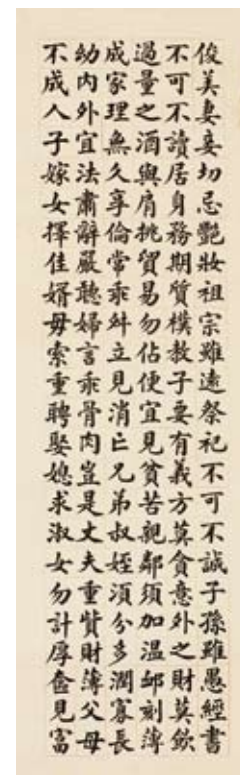 俊美妻妾切忌艷妝祖宗雖遠祭祀不可不誠子孫雖愚經書
不可不讀居身務期質樸教子要有義方莫貪意外之財莫飲
過量之酒與肩挑貿易勿佔便宜見貧苦親鄰須加温卹刻薄
成家理無久享倫常乖舛立見消亡兄弟叔姪須分多潤寡長
幼内外宜法肅辭嚴聽婦言乖骨肉豈是丈夫重貲財薄父母
不成人子嫁女擇佳婿毋索重聘娶媳求淑女勿計厚奩見富